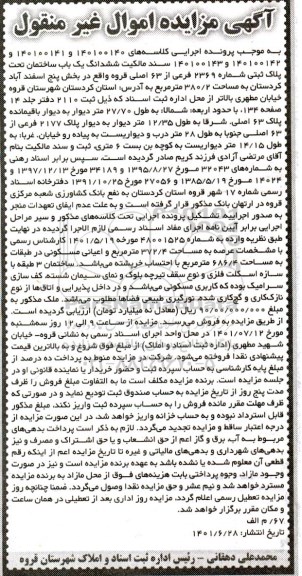 آگهی مزایده اموال غیر منقول
به موجب پرونده اجرایی کلاسه‌های ۱۴۰۰۱۰۰۱۴۰ و ۱۴۰۰۱۰۰۱۴۱ و
۱۴۰۰۱۰۰۱۴۲ و ۱۴۰۰۱۰۰۱۴۳ سند مالکیت ششدانگ یک باب ساختمان تحت
پلاک ثبتی شماره ۲۳۶۹ فرعی از ۶۳ اصلی قروه واقع در بخش پنج اسفند آباد
کردستان به مساحت ۳۸۰/۲ مترمربع به آدرس: استان کردستان شهرستان قروه
خیابان مطهری بالاتر از محل اداره ثبت اسناد که ذیل ثبت ۲۱۱۰ دفتر جلد ۱۴
صفحه ۱۳۴، با حدود اربعه: به طول ۲۷/۷۰ متر دیوار به دیوار باقیمانده
پلاک ۶۳ اصلی. شرقا به طول ۱۲/۳۵ متر دیوار به دیوار پلاک ۲۱۷۷ فرعی از
۶۳ اصلی جنوبا به طول ۲۸ متر درب و دیواریست به پیاده رو خیابان. غربا: به
طول ۱۴/۱۵ متر دیواریست به کوچه بن بست ۶ متری، ثبت و سند مالکیت بنام
آقای مرتضی آزادی فرزند کریم صادر گردیده است. سپس برابر اسناد رهنی
به شماره‌های ۳۲۰۴۳ مورخ ۱۳۹۵/۸/۲۷ و ۳۴۱۸۹ مورخ ۱۳۹۷/۱۲/۱۳ و
۱۴۰۲۴ مورخ ۱۳۸۵/۵/۱۹ و ۲۷۰۵۶ مورخ ۱۳۹۱/۱۰/۲۵ دفترخانه اسناد
رسمی شماره ۱۷ شهر قروه استان کردستان به نفع بانک کشاورزی شعبه مرکزی
قروه در ارتهان بانک مذکور قرار گرفته است. و به علت عدم ایفای تعهدات منجر
به صدور اجراییه تشکیل پرونده اجرایی تحت کلاسه‌های مذکور و سیر مراحل
اجرایی برابر آیین نامه اجرای مفاد اسناد رسمی لازم الاجرا گردیده است. در نهایت
طبق نظریه وارده به شماره ۴۸۰۰۱۵۲۵ مورخه ۱۴۰۱/۵/۱۹ کارشناس رسمی
با مشخصات عرصه به مساحت ۳۷۲/۴ مترمربع و اعیانی مسکونی در طبقات
به مساحت ۶۸۶/۴ مترمربع با احتساب خرپشته می‌باشد. ساختمان ۳ طبقه با
سازه اسکلت فلزی و نوع سقف تیرچه بلوک و نمای سیمان شسته کف سازی
سرامیک بوده که کاربری مسکونی می‌باشد و در داخل پذیرایی و اتاق‌ها از نوع
نازک‌کاری و گچ‌کاری شده. نورگیری طبیعی فضاها مطلوب می‌باشد. ملک مذکور به
مبلغ ۹۰/۰۰۰/۰۰۰/۰۰۰ ریال (معادل نه میلیارد تومان) ارزیابی گردیده است.
از طریق مزایده به فروش می‌رسد. مزایده از ساعت ۹ الی ۱۲ روز سه‌شنبه
مورخ ۱۴۰۱/۰۷/۱۲ در محل واحد اجرای اسناد رسمی به نشانی قروه- خیابان
شهید مطهری (اداره ثبت اسناد و املاک) از مبلغ فوق شروع و به بالاترین قیمت
پیشنهادی نقدا فروخته می‌شود. شرکت در مزایده منوط به پرداخت ده درصد از
مبلغ پایه کارشناسی به حساب سپرده ثبت و حضور خریدار یا نماینده قانونی او در
جلسه مزایده است. برنده مزایده مکلف است ما به التفاوت مبلغ فروش را ظرف
مدت پنج روز از تاریخ مزایده به حساب صندوق ثبت تودیع نماید و در صورتی که
ظرف مهلت مقرر مانده فروش را به حساب سپرده ثبت واریز نکند، مبلغ مذکور
قابل استرداد نبوده و به حساب خزانه واریز خواهد شد در این صورت مزایده از
درجه اعتبار ساقط و مزایده تجدید می‌گردد. لازم به ذکر است پرداخت بدهی‌های
مربوط به آب برق و گاز اعم از حق انشعاب و یا حق اشتراک و مصرف و نیز
بدهی‌های شهرداری و بدهی‌های مالیاتی و غیره تا تاریخ مزایده اعم از اینکه رقم
قطعی آن معلوم شده یا نشده باشد به عهده برنده مزایده است و نیز در صورت
وجود مازاد، وجوه پرداختی بابت هزینه‌های فوق از محل مازاد به برنده مزایده
مسترد خواهد شد و نیم عشر و حق مزایده نقدا وصول می‌گردد. ضمنا چنانچه روز
مزایده تعطیل رسمی اعلام گردد، مزایده روز اداری بعد از تعطیلی در همان ساعت
و مکان مقرر برگزار خواهد شد.
۶۷/ م الف
تاریخ انتشار: ۱۴۰۱/۶/۲۸
محمدعلی دهقانی – رئیس اداره ثبت اسناد و املاک شهرستان قروه